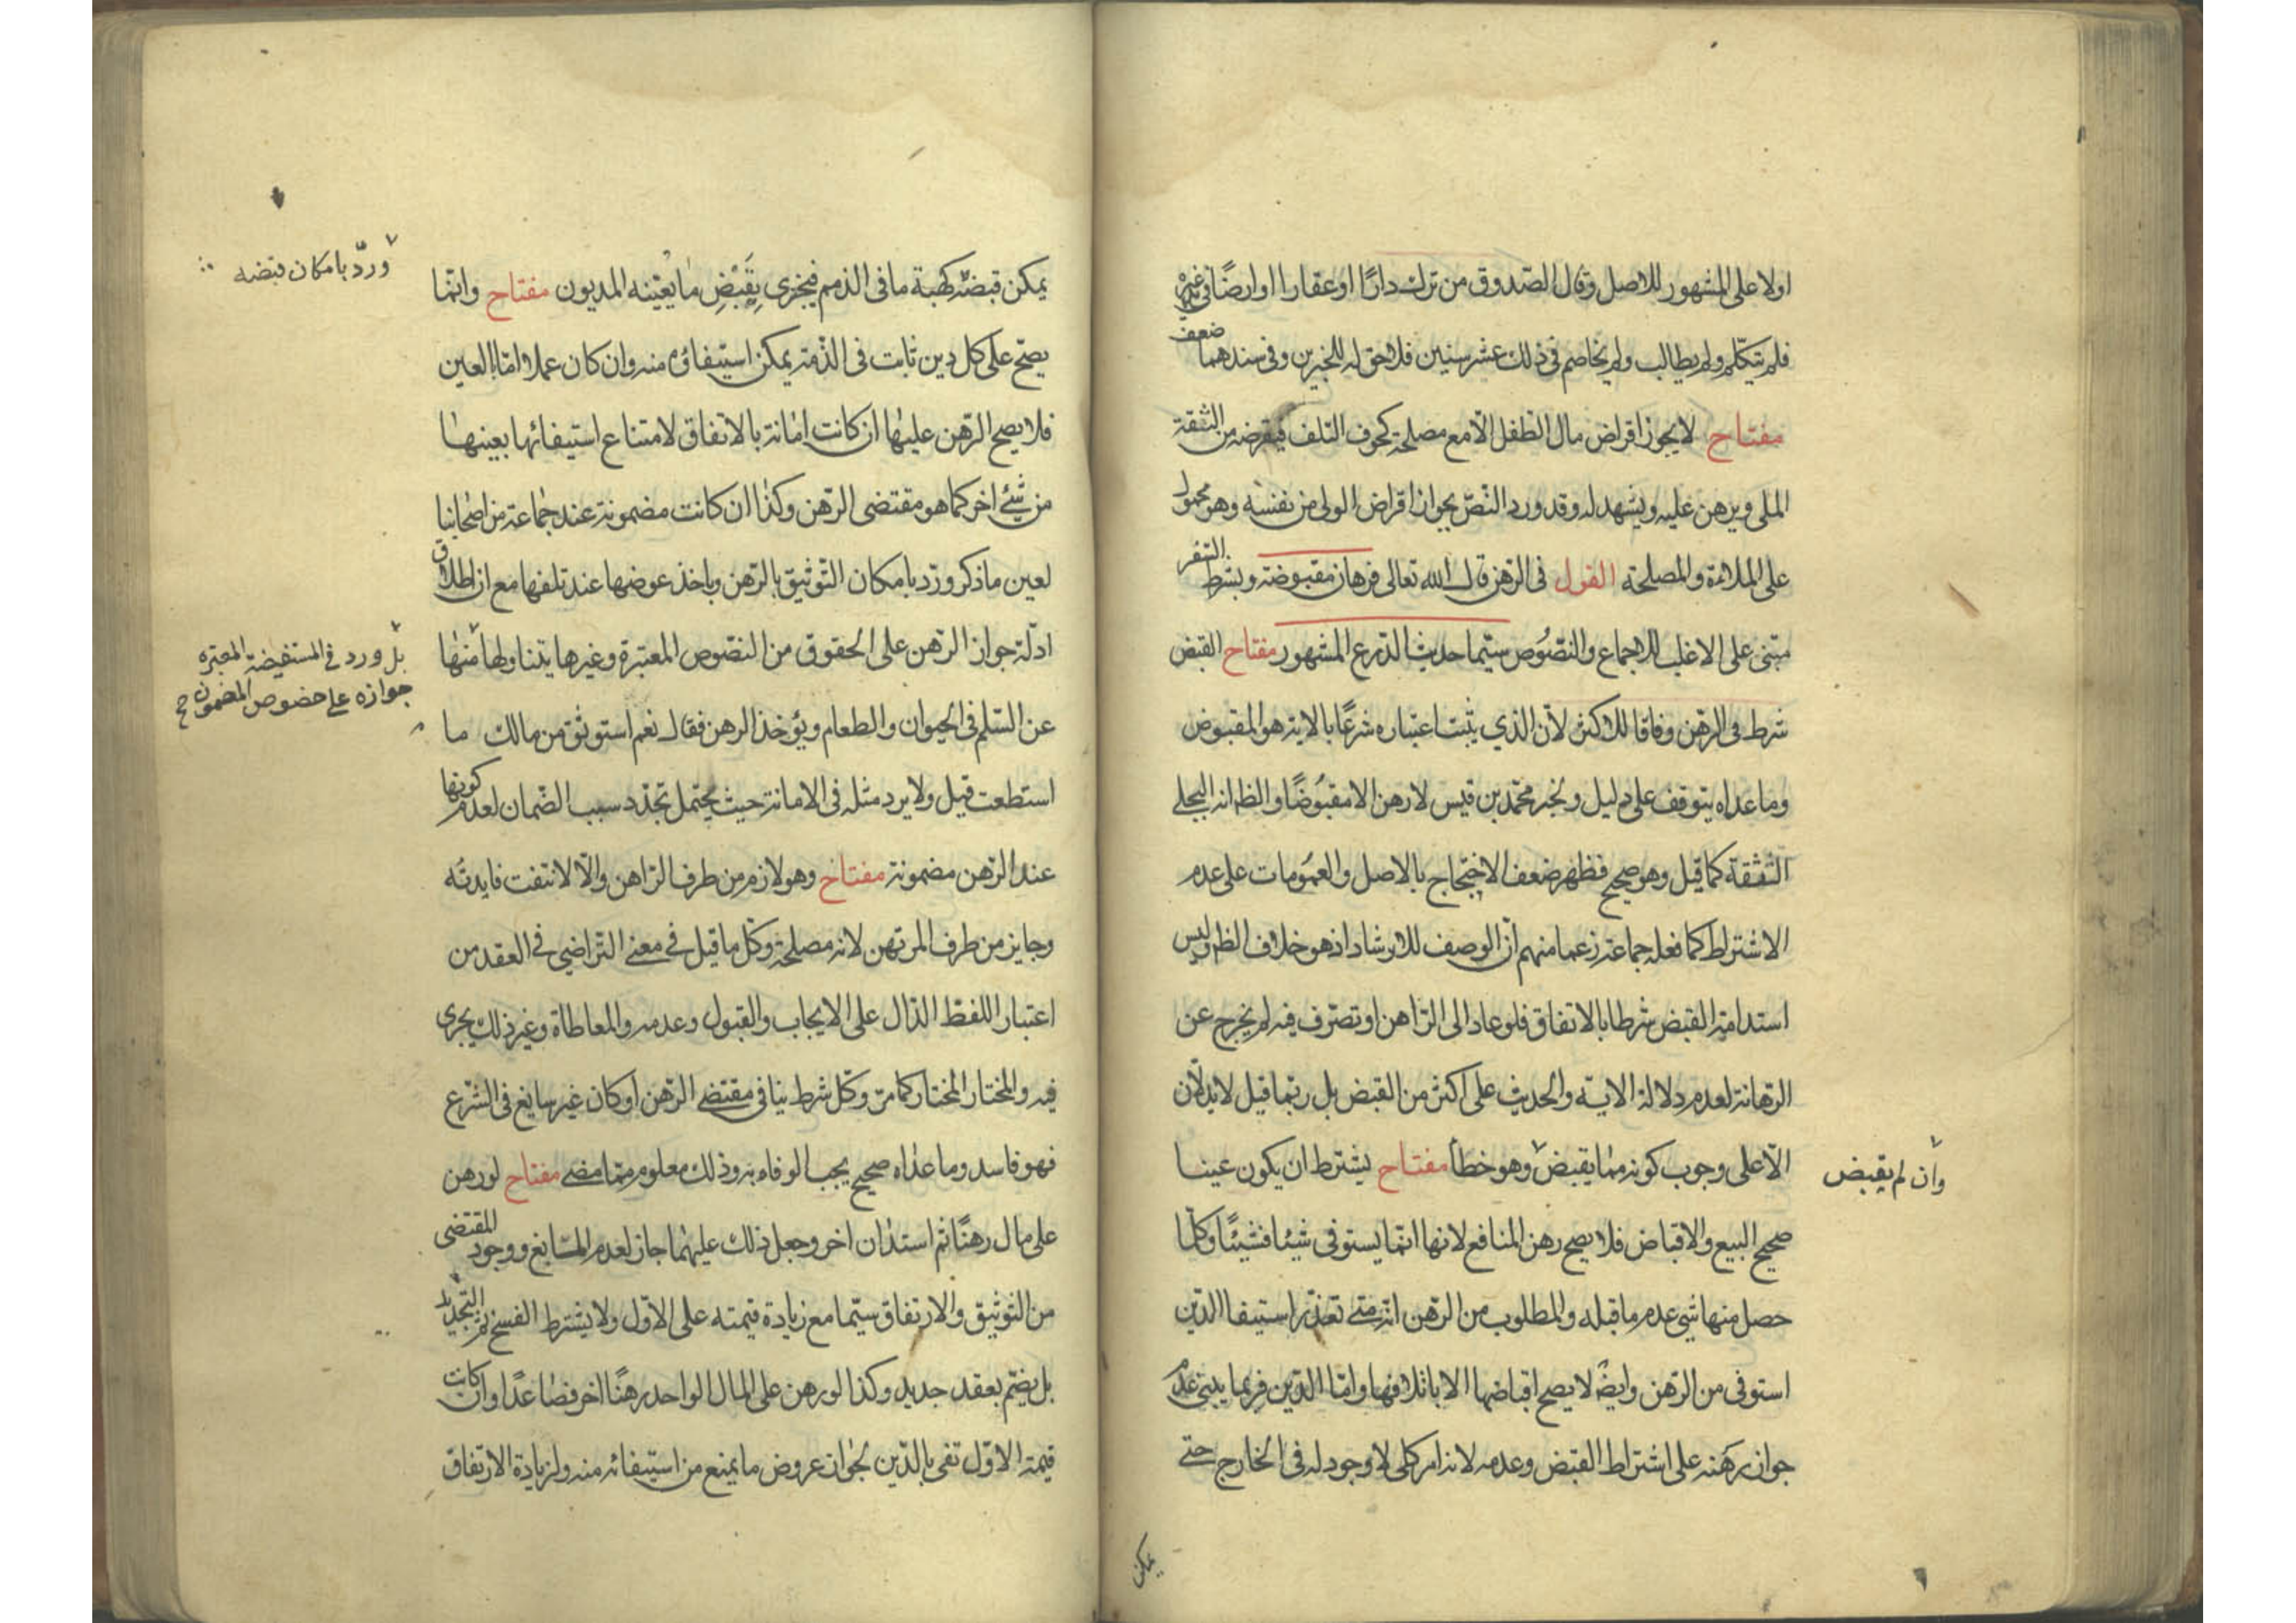 اولا على المشهور للاصل وقال الصدوق من ترك دارًا او عقارا او ارضًا في يد غيره
فلم يتكلم ولم يطالب ولم يخاصم في ذلك عشر سنين فلا حق له للخبرين وفي سندهما ضعف
مفتاح لا يجوز اقراض مال الطفل الا مع مصلحة كخوف التلف فيقرضه من الثقة
الملي ويرهن عليه ويشهد له وقد ورد النص بجواز اقراض الولي من نفسه وهو محمول
على الملائة والمصلحة القول في الرهن قال الله تعالى فرهان مقبوضة وشرط السفر
مبتنى على الاغلب للاجماع والنصوص سيّما حديث الدرع المشهور مفتاح القبض
شرط في الرهن وفاقا للاكثر لأن الذي يثبت اعتباره شرعًا بالاية هو المقبوض
وما عداه يتوقف على دليل ولخبر محمّد بن قيس لا رهن الا مقبوضًا والظ انه البجلي
الثقة كما قيل وهو صحيح فظهر ضعف الاحتجاج بالاصل والعمومات على عدم
الاشتراط كما فعله جماعة زعما منهم ان الوصف للارشاد اذ هو خلاف الظ وليس
استدامة القبض شرطا بالاتفاق فلو عاد الى الراهن او تصرّف فيه لم يخرج عن
الرهانة لعدم دلالة الاية والحديث على اكثر من القبض بل ربّما قيل لا يدلّان
الّا على وجوب كونه ممّا يقبض وهو خطأ مفتاح يشترط ان يكون عينا
وان لم يقبض
صحيح البيع والاقباض فلا يصح رهن المنافع لانها انّما يستوفى شيئا فشيئًا وكلّما
حصل منها شي عدم ما قبله والمطلوب من الرهن انّه متى تعذّر استيفا الدّين
استوفى من الرهن وايضًا لا يصح اقباضها الا باتلافها وامّا الدّين فربما يبنى عدم
جواز رهنه على اشتراط القبض وعدمه لانه امر كلي لا وجود له في الخارج حتى
يمكن
يمكن قبضه كهبة ما في الذمم فيجزى بقبض ما يعيّنه المديون مفتاح وانّما
ورُدّ بامكان قبضه
يصحّ على كل دين ثابت في الذّمة يمكن استيفاؤه منه وان كان عملا امّا العين
فلا يصح الرّهن عليها ان كانت امانة بالاتفاق لامتناع استيفائها بعينها
من شيء اخر كما هو مقتضى الرّهن وكذا ان كانت مضمونة عند جماعة من اصحابنا
لعين ما ذكر ورُدّ بامكان التّوثيق بالرّهن وباخذ عوضها عند تلفها مع ان اطلاق
ادلّة جواز الرّهن على الحقوق من النصّوص المعتبرة وغيرها يتناولها منها
بل ورد في المستفيضة المعتبره
جوازه على خصوص المضمون
عن السّلم في الحيوان والطعام ويؤخذ الرهن فقال نعم استوثق من مالك ما
استطعت قيل ولا يرد مثله في الامانة حيث يحتمل تجدّد سبب الضّمان لعدم كونها
عند الرّهن مضمونة مفتاح وهو لازم من طرف الرّاهن والّا لانتفت فايدته
وجايز من طرف المرتهن لانه مصلحة وكلّ ما قيل في معنى التّراضي في العقد من
اعتبار اللفظ الدّال على الايجاب والقبول وعدمه والمعاطاة وغير ذلك يجري
فيه والمختار المختار كما مرّ وكلّ شرط ينافي مقتضى الرّهن او كان غير سايغ في الشّرع
فهو فاسد وما عداه صحيح يجب الوفاء به وذلك معلوم ممّا مضى مفتاح لو رهن
على مال رهنًا ثم استدان اخر وجعل ذلك عليهما جاز لعدم المانع ووجود المقتضى
من التوثيق والارتفاق سيّما مع زيادة قيمته على الاوّل ولا يشترط الفسخ ثم التجديد
بل يضمّ بعقد جديد وكذا لو رهن على المال الواحد رهنًا اخر فصاعدًا وان كانت
قيمة الاوّل تفي بالدّين لجواز عروض ما يمنع من استيفائه منه ولزيادة الارتفاق